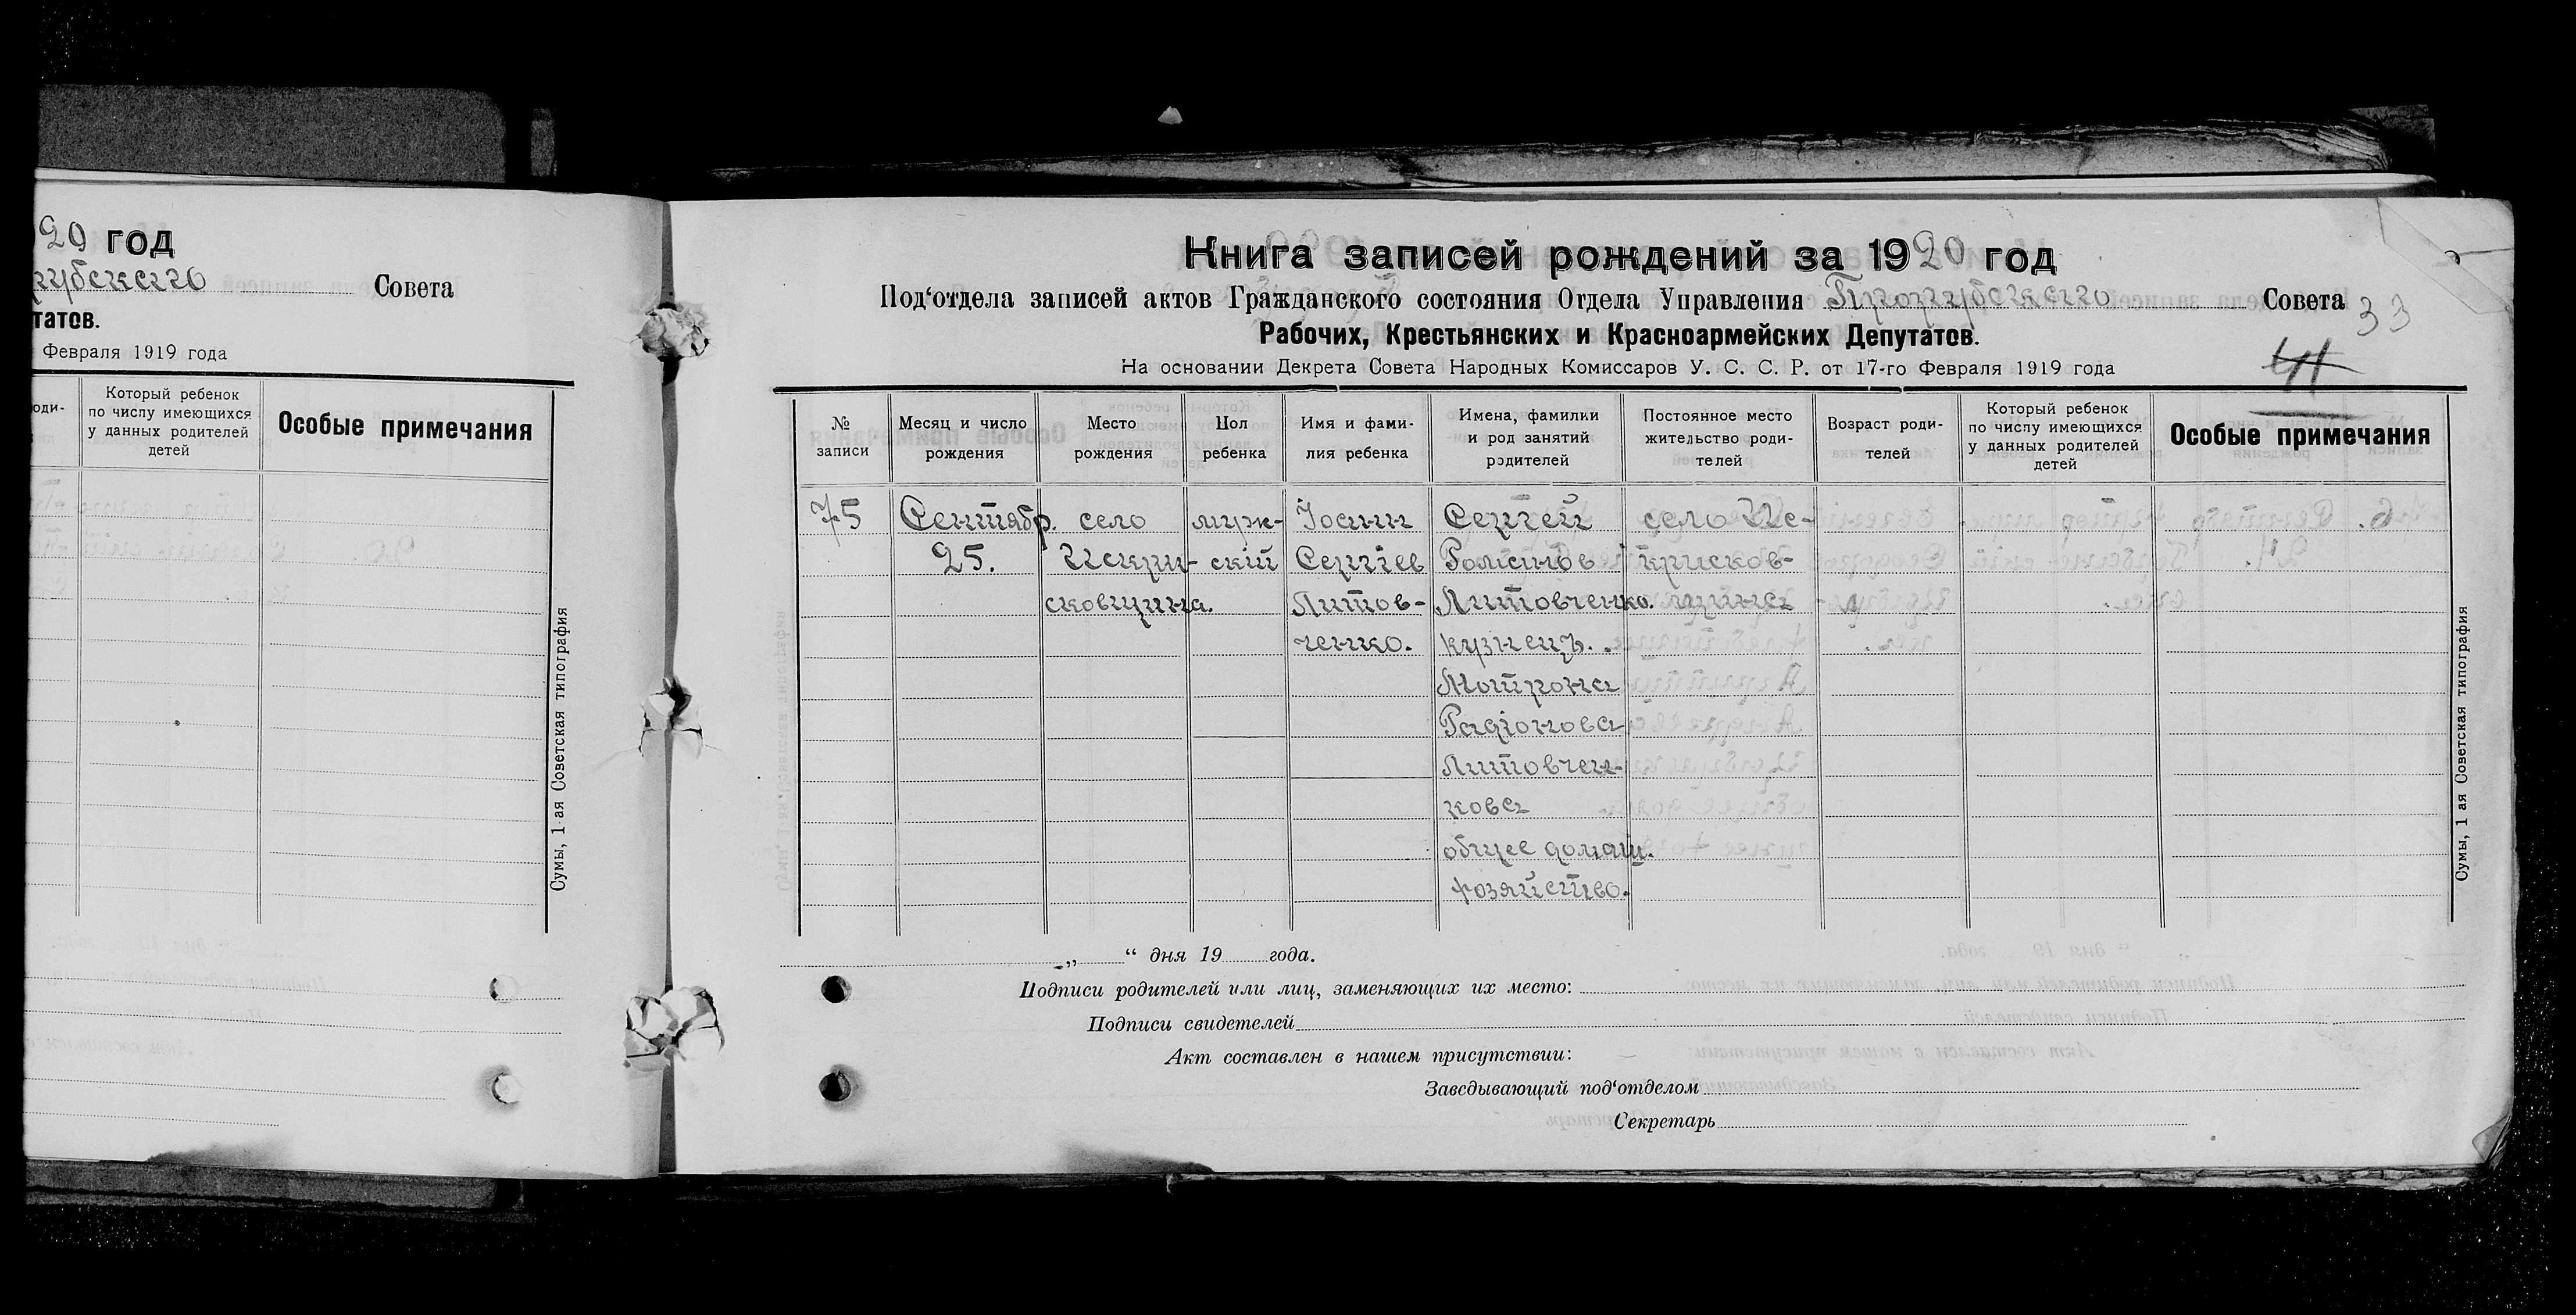 20 год
Совета
татов.
Февраля 1919 года
Который ребенок
по числу имеющихся
у данных родителей
детей
Особые примечания
Сумы, 1-ая Советская типография
Книга записей рождений за 1920 год
Под‘отдела записей актов Гражданского состояния Отдела Управления Грогрубского Совета
33
Рабочих, Крестьянских и Красноармейских Депутатов.
На основании Декрета Совета Народных Комиссаров У. С. С. Р. от 17-го Февраля 1919 года
№
записи
Месяц и число
рождения
Место
рождения
Пол
ребенка
Имя и фами-
лия ребенка
Имена, фамилии
и род занятий
родителей
Постоянное место
жительство роди-
телей
Возраст роди-
телей
Который ребенок
по числу имеющихся
у данных родителей
детей
Особые примечания
75
Сентябр.
25.
село
Искри-
сковщина.
муж-
ский
Іосип
Сергіев
Литов-
ченко.
Сергей
Романов
Литовченко.
кузнецъ.
Мотрона
Радіонова
Литовчен-
кова
общее домаш.
хозяйство.
село Ис-
крисков-
щина
„ “ дня 19 года.
Подписи родителей или лиц, заменяющих их место:
Подписи свидетелей
Акт составлен в нашем присутствии:
Заведывающий под‘отделом
Секретарь
Сумы, 1 ая Советская типография